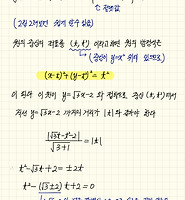 (t, t²) 이라고하면 원의 방정식은
(중심이 y=x² 위에 있으므로)
(x-t)²+(y-t²)² = t²
이 원이 직선 y=√3x-2 와 접하므로, 중심 (t, t²)에서
직선 y=√3x-2 까지의 거리가 |t| 와 같아야 한다
|√3t-t²-2| / √3+1 = |t|
t²-√3t+2 = ±2t
t²-(√3±2)t+2=0